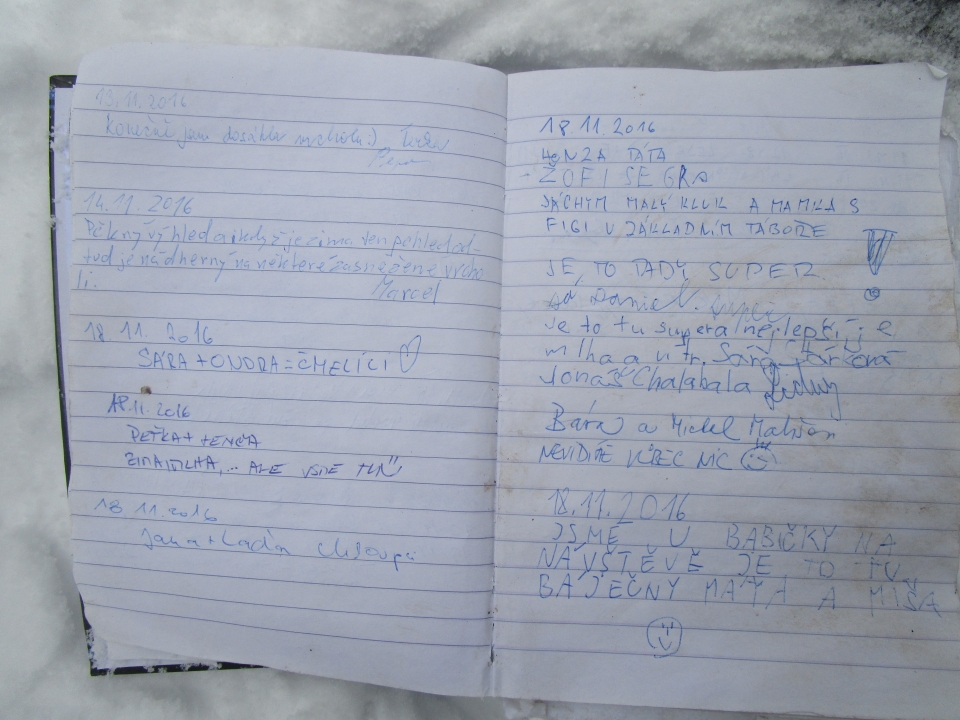 13.11.2016
Konečně jsem dosáhla vrcholu :)
14.11.2016
Pěkný výhled a i když je zima ten pohled od-
tud je nádherný na některé zasněžené vrcho
li.
Marcel
18 11. 2016
SÁRA + ONDRA = ČMELÍCI
18.11.2016
PEŤKA + LENČA
ZIMA, MLHA, ... ALE JSME TU
18 11.2016
Jana + Laďa
18 11. 2016
HONZA TÁTA
ŽOFI SEGRA
JÁCHYM MALÝ KLUK A MAMKA S
FIGI V ZÁKLADNÍM TÁBOŘE
JE TO TADY SUPER
Daniel
Je to tu super a nejlepší je
mlha a vítr. Sára
Jonáš Chalabala
Bára a Michal
NEVIDÍTE VŮBEC NIC
18.11.2016
JSME U BABIČKY NA
NÁVŠTĚVĚ JE TO TU
BÁJEČNÝ MÁŤA A MÍŠA